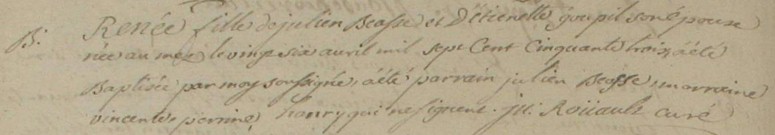 B. Renée fille de julien Beasse et D'etienelle goupil son épouse
née au mez le vingt six avril mil sept Cent Cinquante trois, a été
Baptisée par moy soussigné, a été parrain julien Beasse, marraine
vincente perrine henry qui ne signent. J. Roüault curé